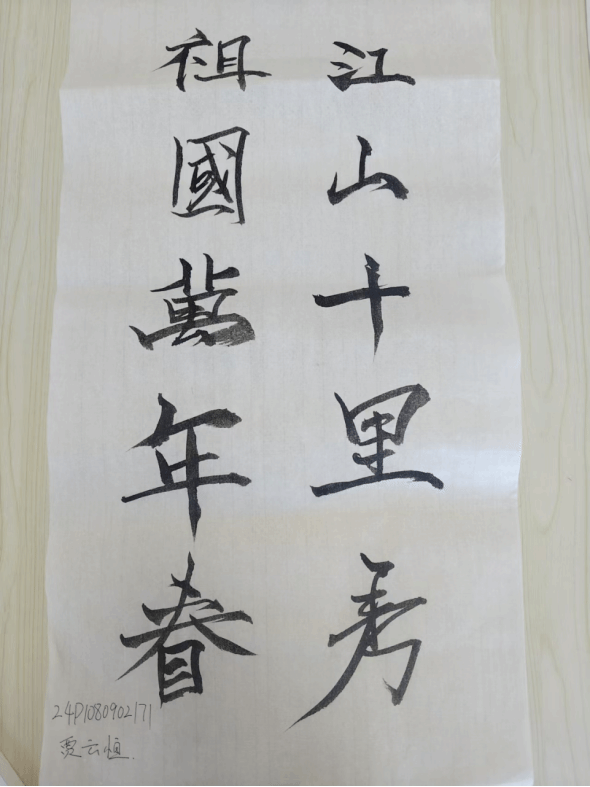 江山十里秀
祖國萬年春
24P1080902171
贾云恒.